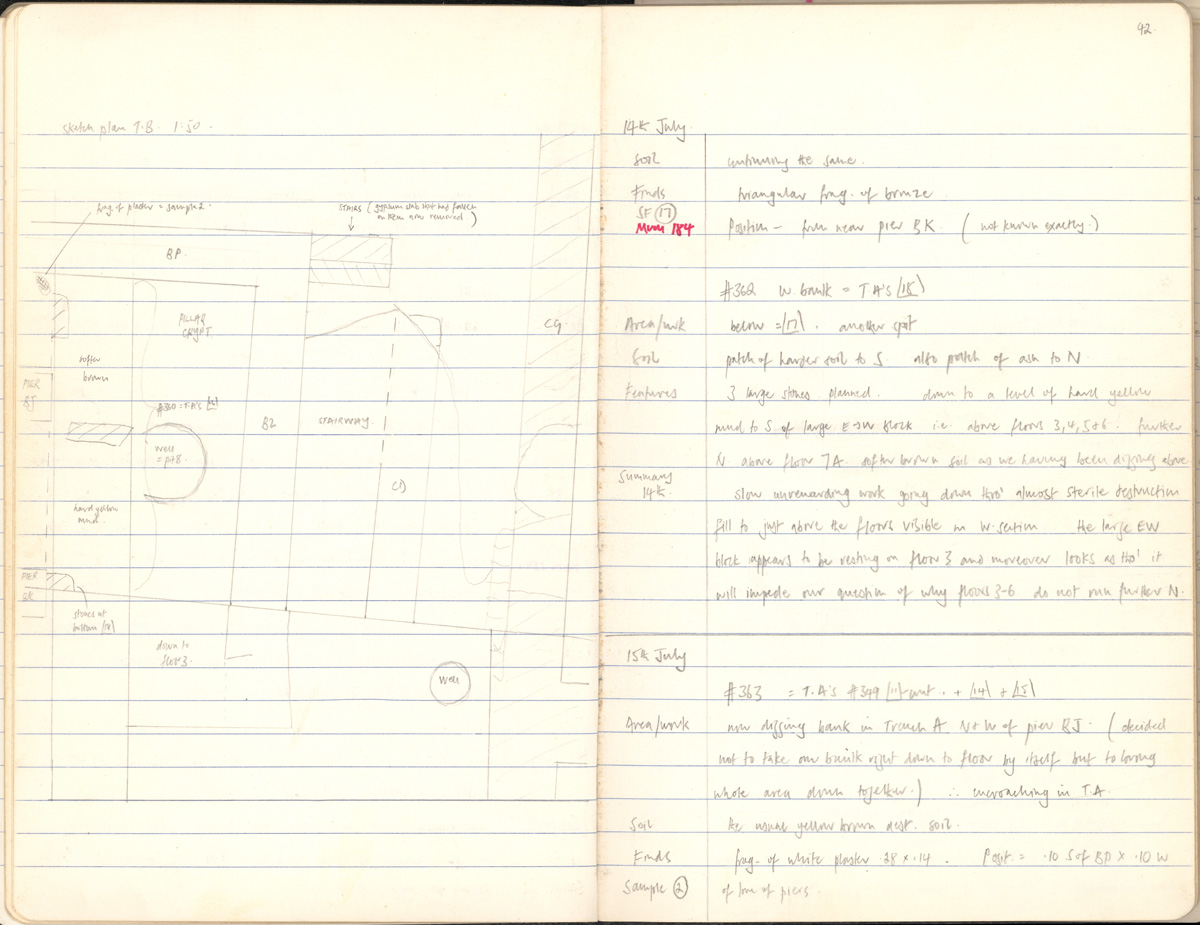 sketch plan T.B. 1:50.
frag. of plaster = sample 2.
STAIRS (gypsum slab that had fallen
on them and removed)
BP.
PILLAR
CRYPT.
CG
softer
brown
PIER
BJ
#360 = T.A's
BZ
STAIRWAY.
well
= pit 8.
CD
hard yellow
mud.
PIER
BK
stones at
bottom /18\
down to
floor 3.
Well
42.
14th July.
Soil continuing the same.
Finds triangular frag. of bronze.
SF (17)
Mum 184 Position - from near pier BK. (not known exactly.)
#362 W. baulk = T A's /18\)
Area/work below = /17\. another spit
Soil patch of harder soil to S. also patch of ash to N.
Features 3 large stones planned. down to a level of hard yellow
mud to S. of large E-W block i.e. above floors 3, 4, 5 & 6. further
N. above floor 7A. softer brown soil as we having been digging above.
Summary
14th. slow unrewarding work going down thro' almost sterile destruction
fill to just above the floors visible in W. section the large EW
block appears to be resting on floor 3 and moreover looks as tho' it
will impede our question of why floors 3-6 do not run further N.
15th July
#363 = T.A's #349 /11\ cont. + /14\ + /15\
Area/work now digging bank in Trench A N + W of pier BJ. (decided
not to take our baulk right down to floor by itself but to bring
whole area down together.) ∴ encroaching in T.A.
Soil the usual yellow brown dest. soil.
Finds frag. of white plaster .28 x .14. Posit. = .10 S of BP x .10 W
Sample (2) of line of piers.